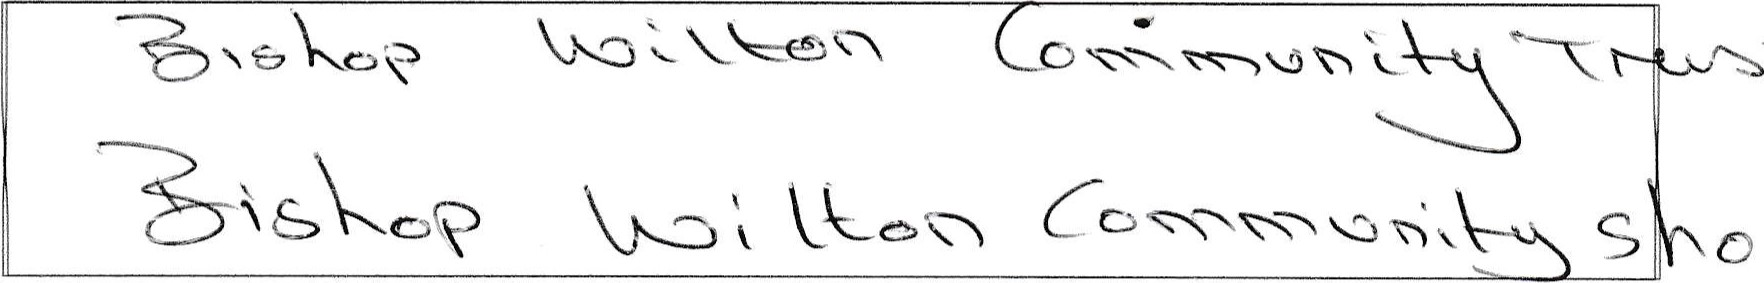 Bishop Wilton Community Trus
Bishop Wilton Community Sho